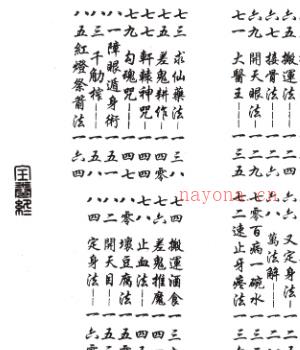 搬運法——一二四
六六 又定身法
六七 開天眼法—一二九
六八 萬法解——
六九 接骨法——一三
七〇 百病一碗水
七一 大醫王——一三五
七二 速止牙疼法
七三 求仙藥法——一三八
七四 搬運酒食 一三
七五 差鬼耕作——一四〇
七六 差鬼推魔 一四
七七 軒轅神咒——一四四
七八 止血法—— 一四
七九 勾魂咒——一四七
八〇 壞豆腐法 一五
八一 障眼遁身術—一五
八二 開天目—— 一五
八三 千觔榨——一五八
八四 定身法—— 一六
八五 紅燈祭箭法—一六四
nayona.cn